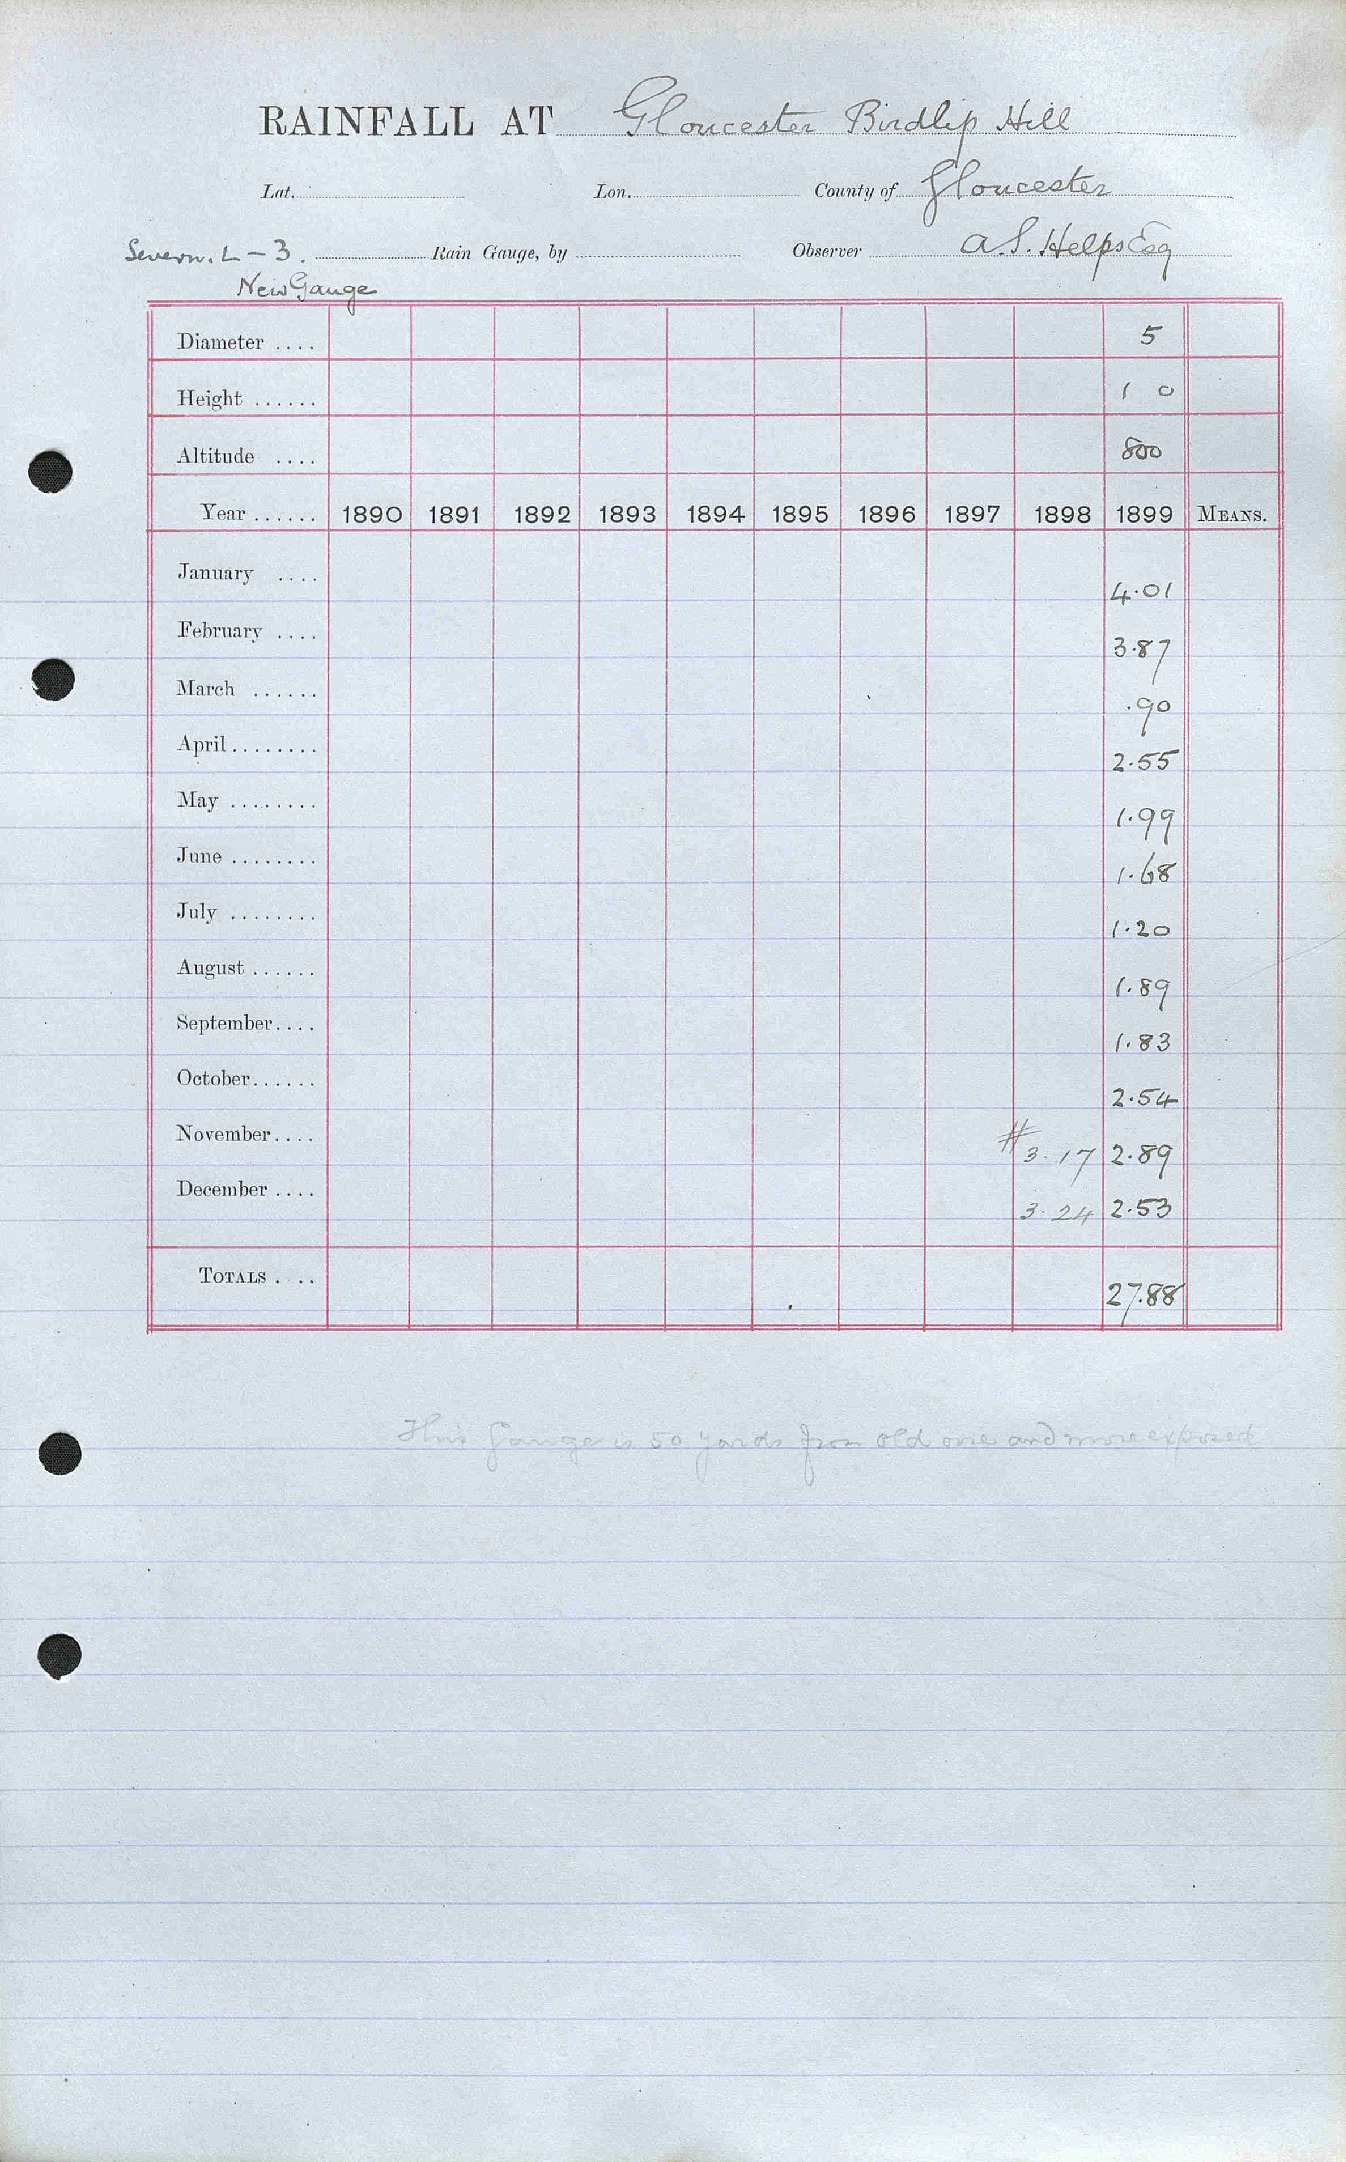 RAINFALL AT Gloucester Birdlip Hill
Lat. Lon. County of Gloucester
Severn. L - 3. Rain Gauge, by Observer A. S. Helps Esq
New Gauge
Diameter .... 5
Height ...... 1 0
Altitude .... 800
Year ...... 1890 1891 1892 1893 1894 1895 1896 1897 1898 1899 MEANS.
January .... 4.01
February .... 3.87
March ...... .90
April ........ 2.55
May ........ 1.99
June ........ 1.68
July ........ 1.20
August ...... 1.89
September .... 1.83
October ...... 2.54
November .... # 3.17 2.89
December .... 3.24 2.53
TOTALS .... 27.88
This Gauge is 50 yards from old one and more exposed